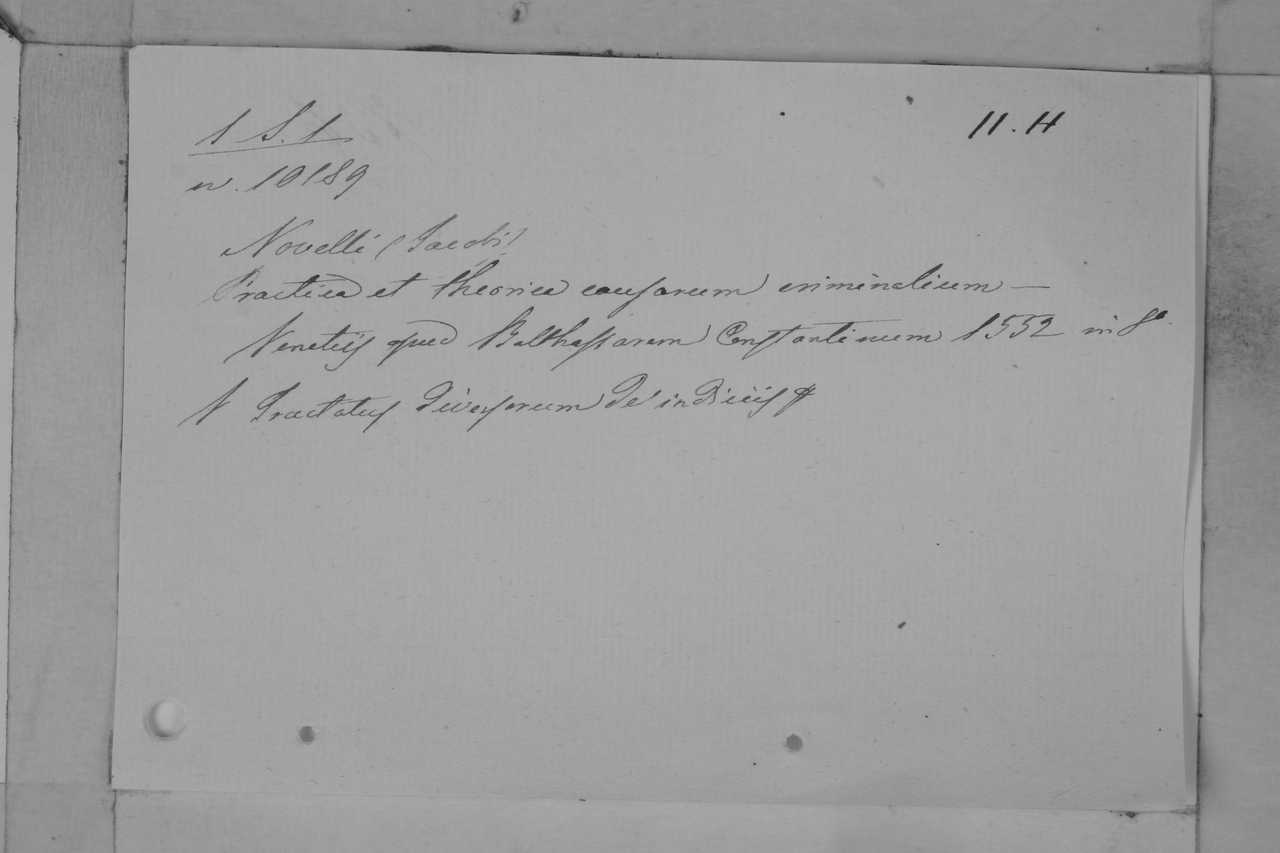 1 S. 1
11. H
n. 10189
Novelli (Jacobi)
Practica et theorica causarum criminalium —
Venetiis apud Balthassarem Constantinum 1552 in 8°.
Tractatus diversorum de indiciis